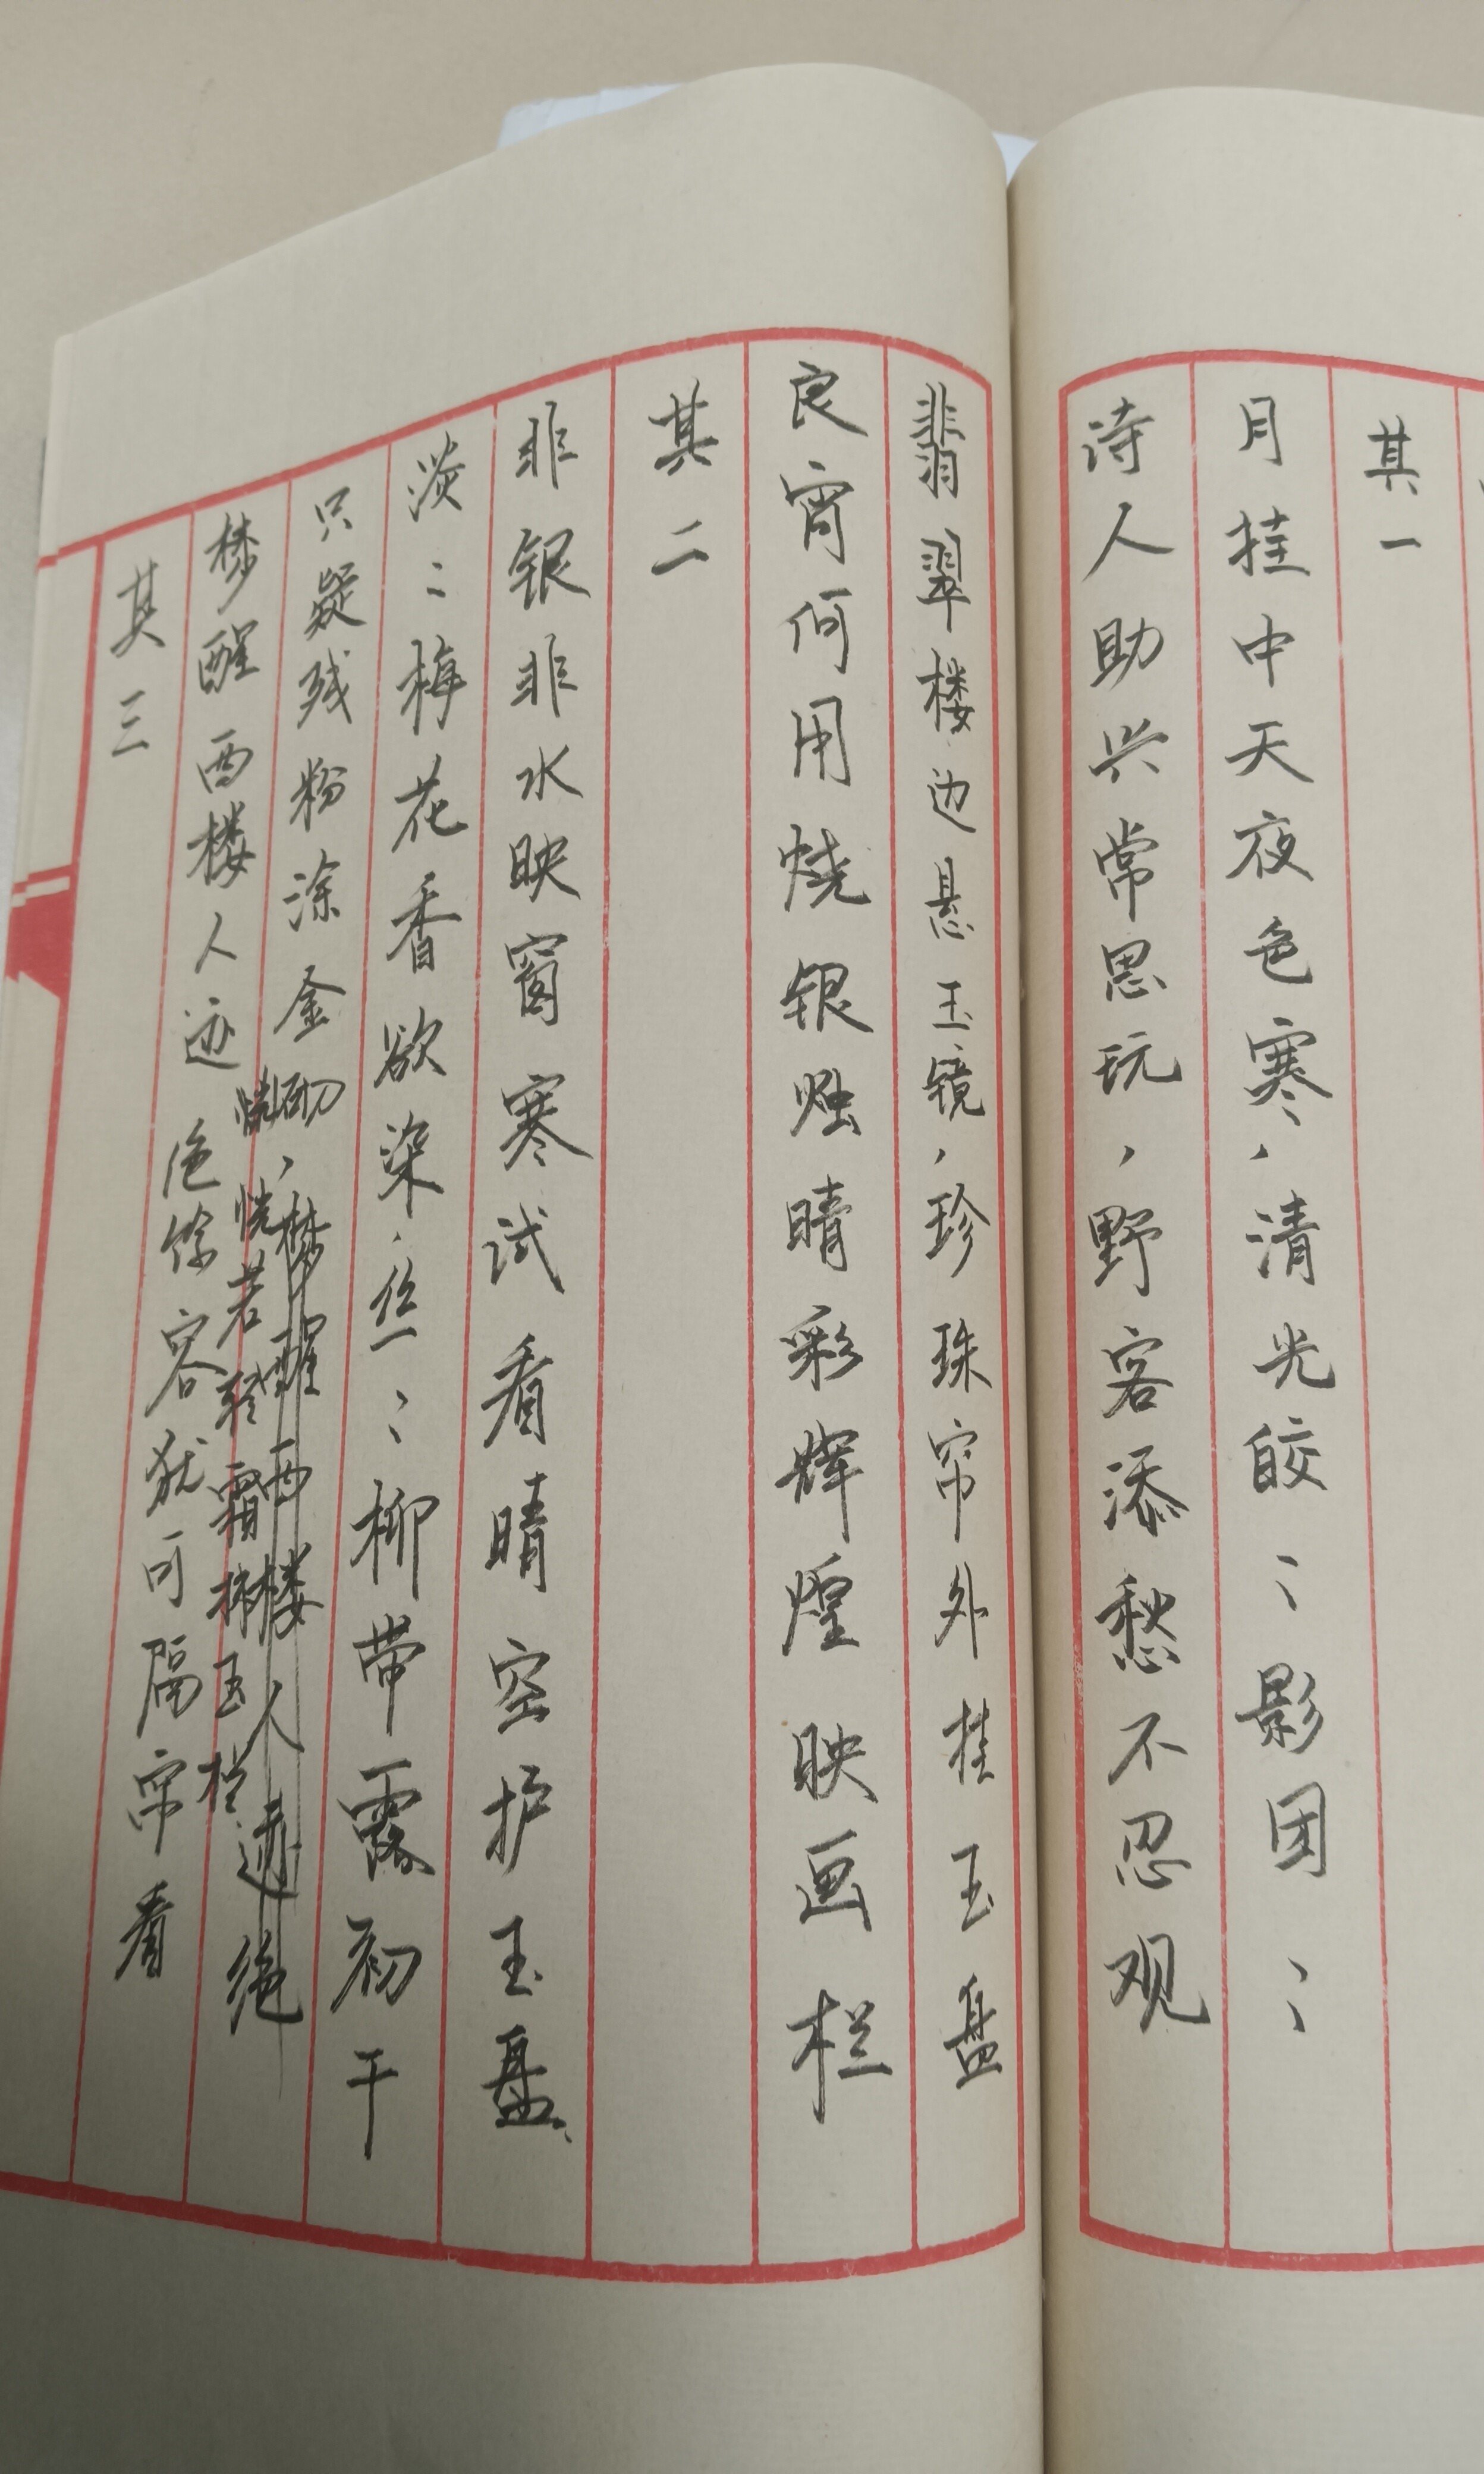 其一
月挂中天夜色寒，清光皎〻影团〻
诗人助兴常思玩，野客添愁不忍观
翡翠楼边悬玉镜，珍珠帘外挂玉盘
良宵何用烧银烛晴彩辉煌映画栏
其二
非银非水映窗寒试看晴空护玉盘、
淡〻梅花香欲染、丝〻柳带露初干
只疑残粉涂金砌，梦醒西楼人迹绝
恍若轻霜抹玉栏
梦醒西楼人迹绝馀容犹可隔帘看
其三